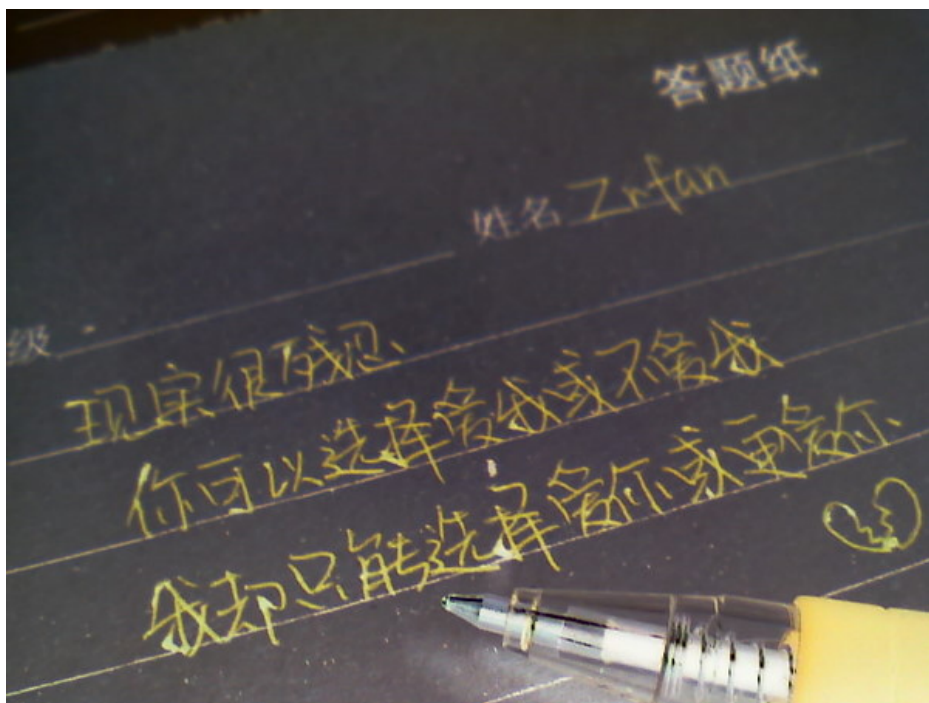 答题纸
级 姓名 Znfan
现实很残忍
你可以选择爱我或不爱我
我却只能选择爱你或更爱你